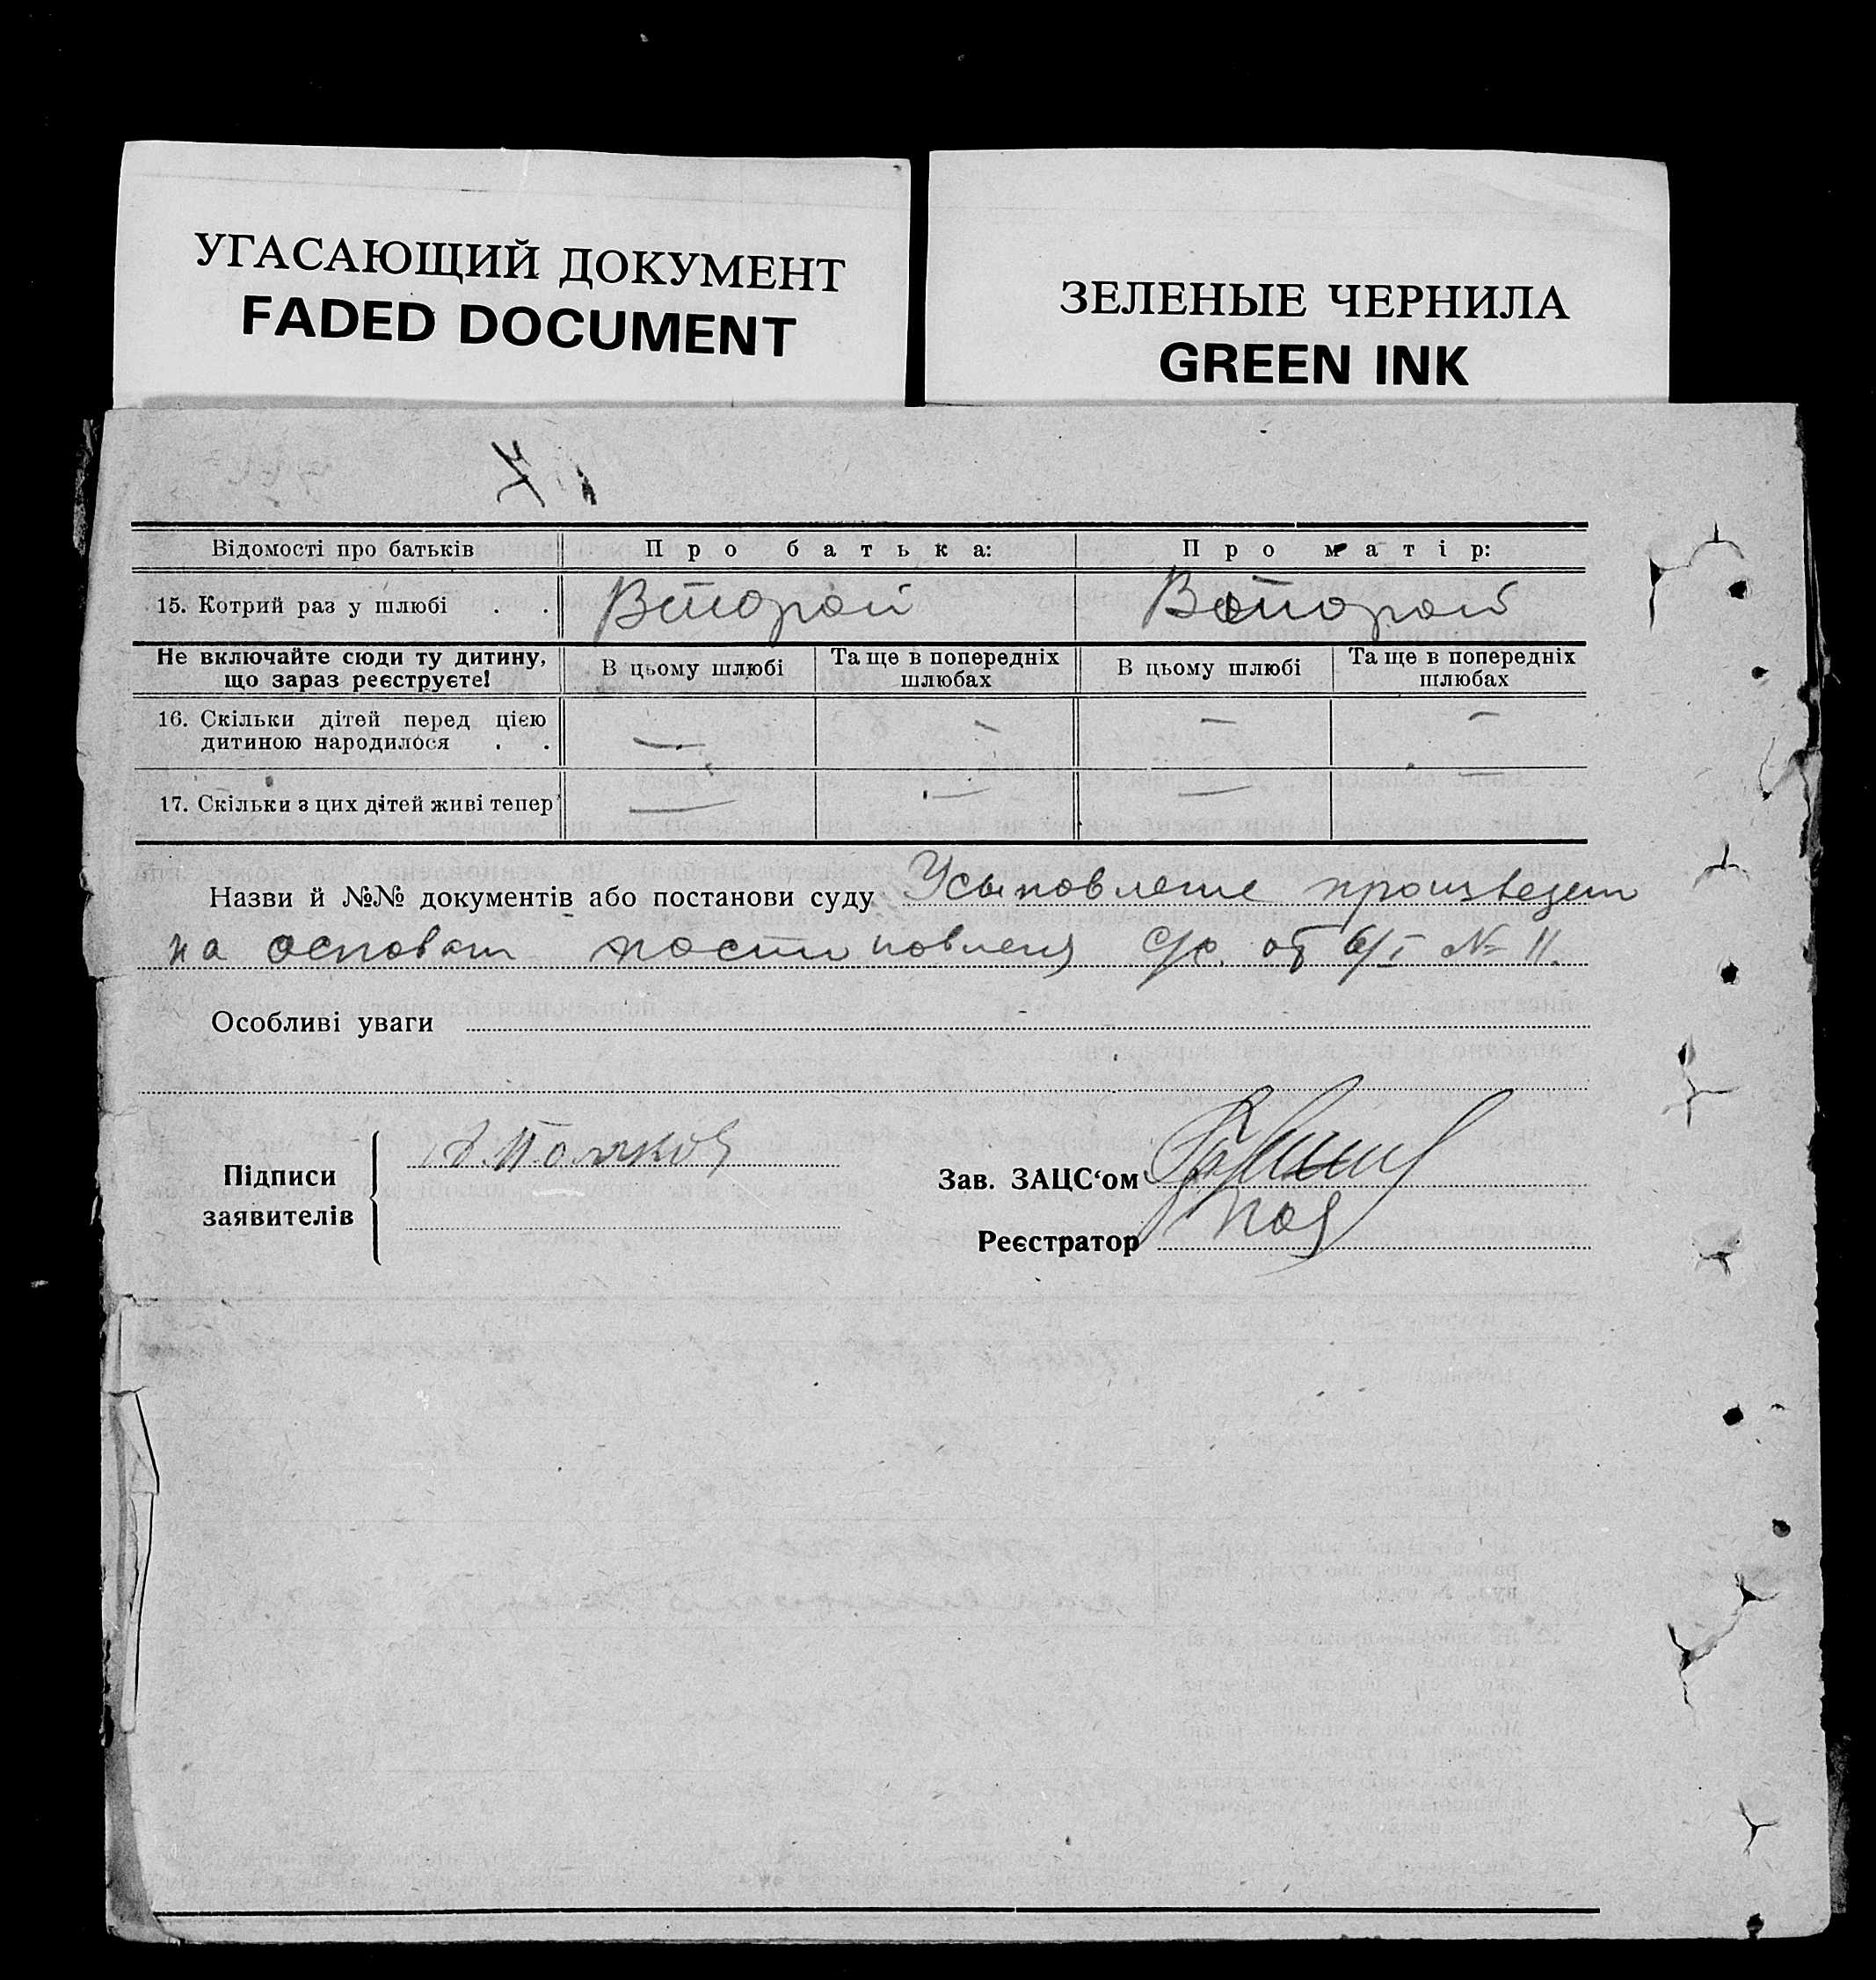 УГАСАЮЩИЙ ДОКУМЕНТ
FADED DOCUMENT
ЗЕЛЕНЫЕ ЧЕРНИЛА
GREEN INK
Відомості про батьків Про батька: Про матір:
15. Котрий раз у шлюбі . . Второй Второй
Не включайте сюди ту дитину, що зараз реєструєте! В цьому шлюбі Та ще в попередніх шлюбах В цьому шлюбі Та ще в попередніх шлюбах
16. Скільки дітей перед цією дитиною народилося . . — — — —
17. Скільки з цих дітей живі тепер — — — —
Назви й №№ документів або постанови суду Усыновление произведен
на основан постановления с/с. от 6/I № 11.
Особливі уваги
Підписи заявителів Поляков
Зав. ЗАЦС‘ом
Реєстратор